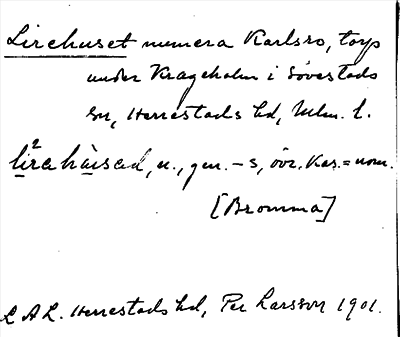 Lirehuset numera Karlsro, torp
under Krageholm i Sövestads
sn, Herrestads hd, Mlm. l.
li²rehu̇sad, n., gen. -s, övr. kas. = nom.
[Bromma]
L A L. Herrestads hd, Per Larsson 1901.